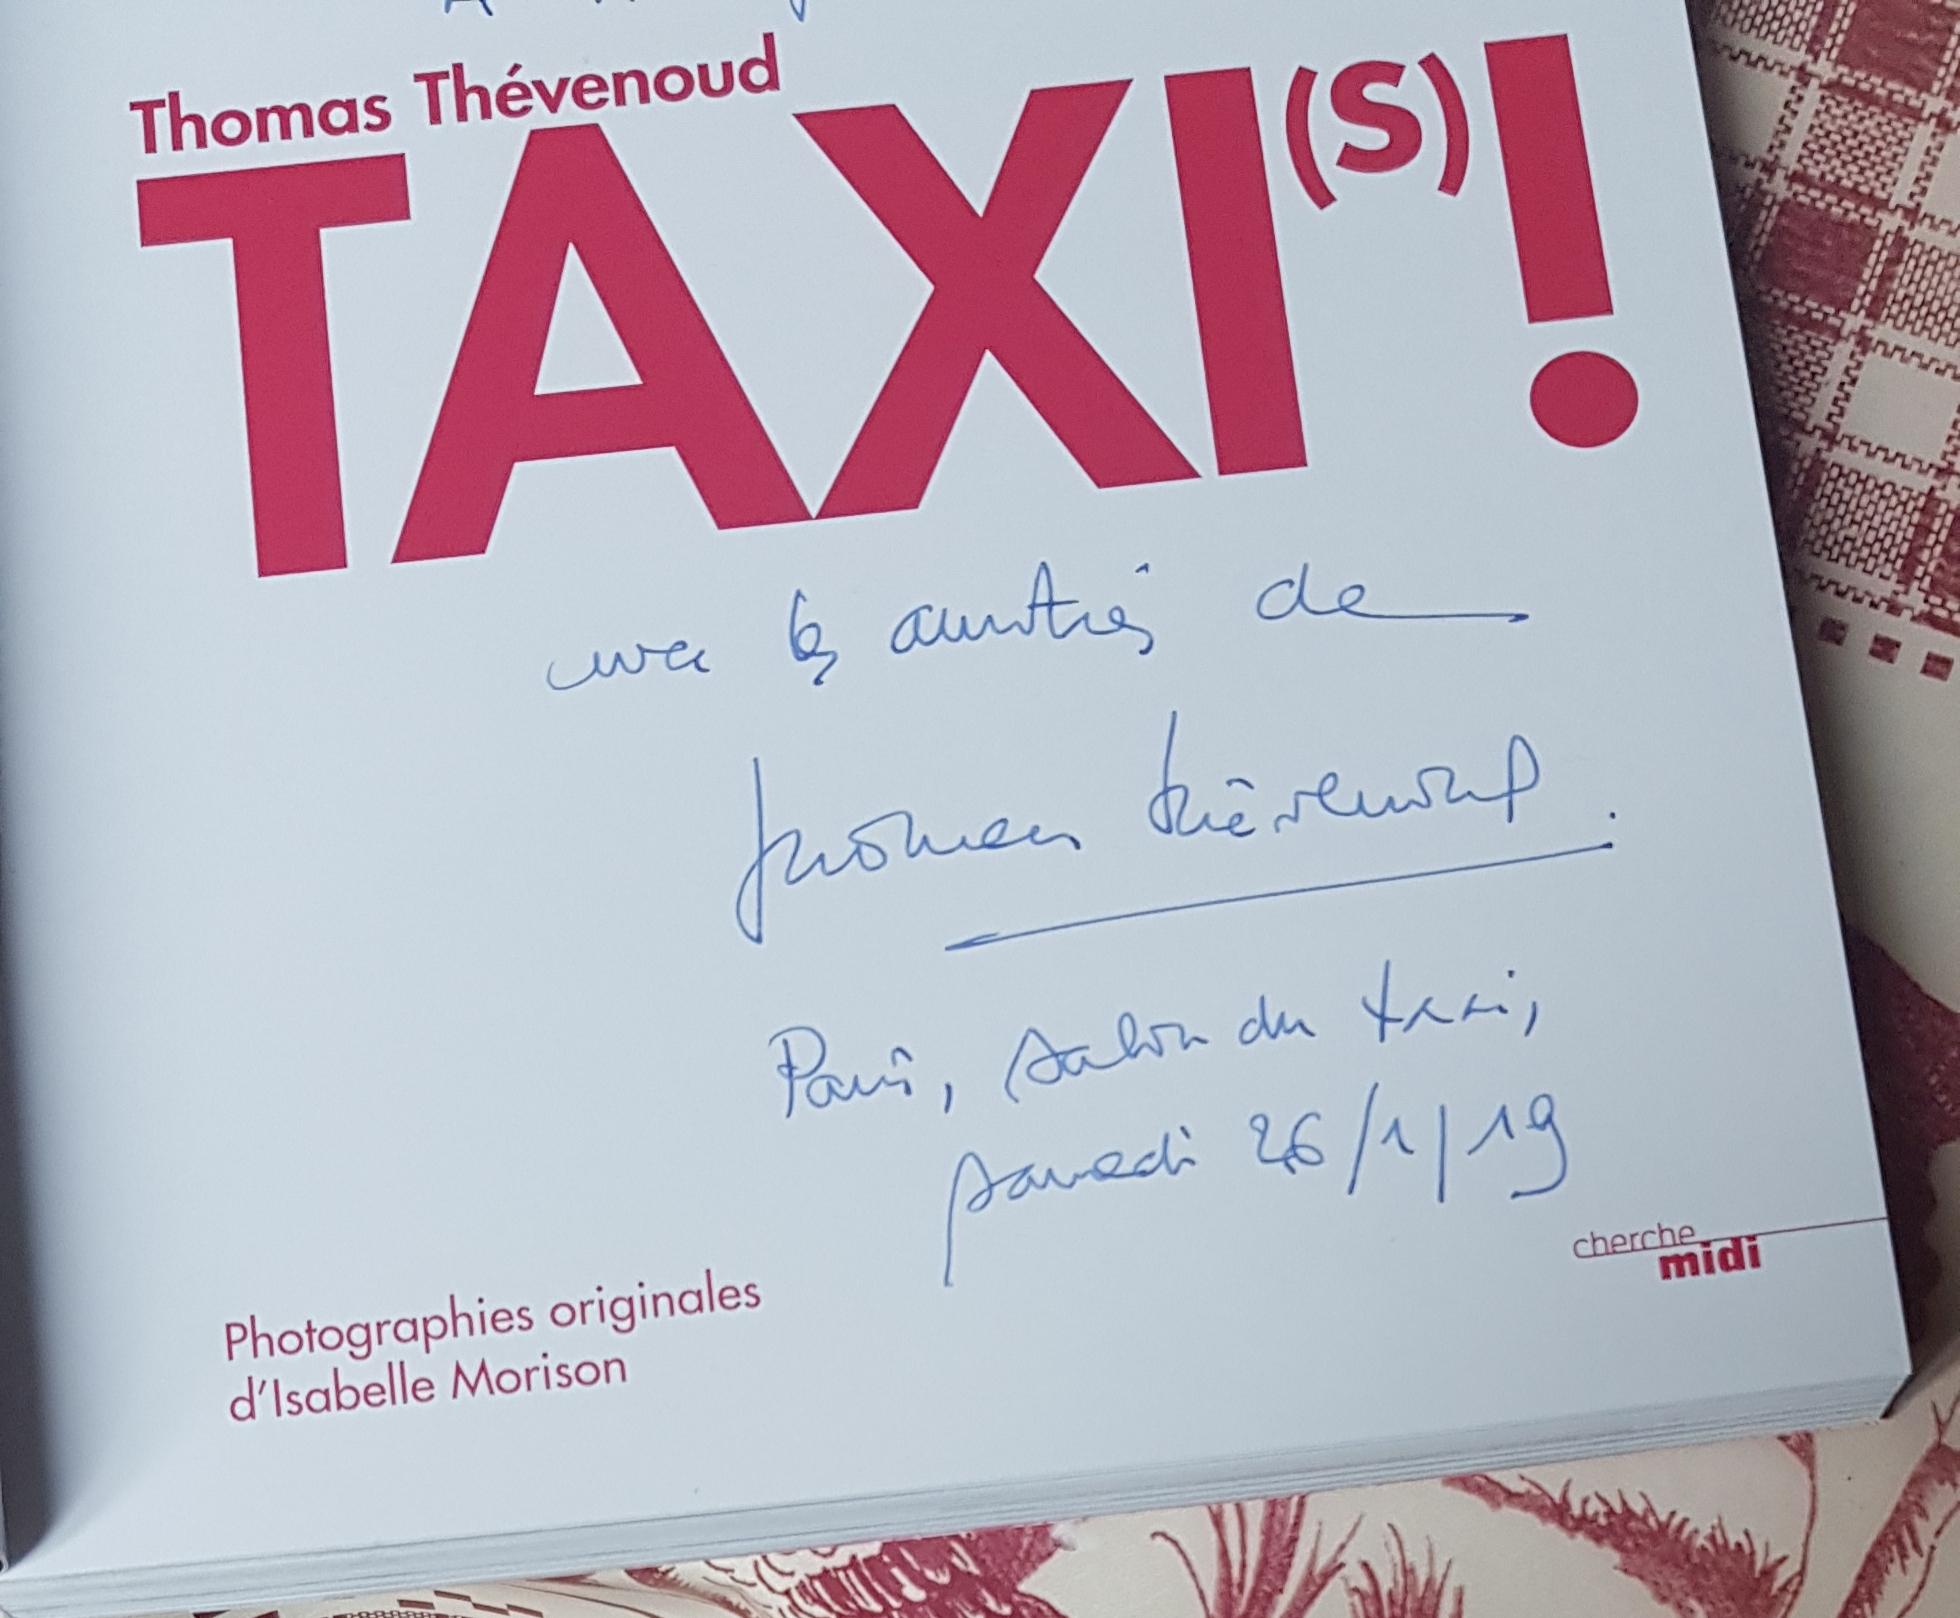 Thomas Thévenoud
TAXI(S)!
avec les amitiés de
Thomas Thévenoud.
Paris, salon du taxi,
samedi 26/1/19
cherche
midi
Photographies originales
d'Isabelle Morison